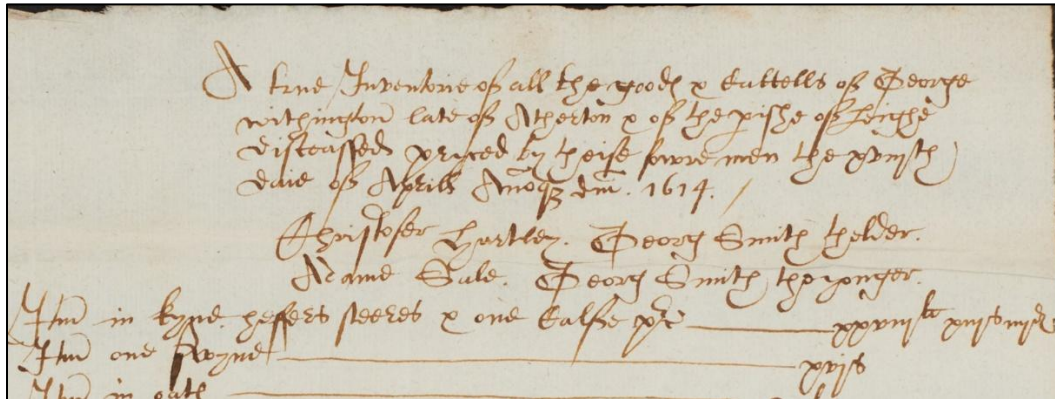 A true Inventorie of all the goods & Cattells of George
withington late of Atherton & of the pishe of Leighe
disceassed prysed by theise fowre men the xviijth
daie of Aprill Anoqz dm. 1614.
Christofer Hartley. Georg Smith thelder.
Adame Sale. Georg Smith the yonger.
Itm in kyne heffers steeres & one Calfe prc xxviijli xiijs iiijd
Itm one swyne xvjs
Itm in